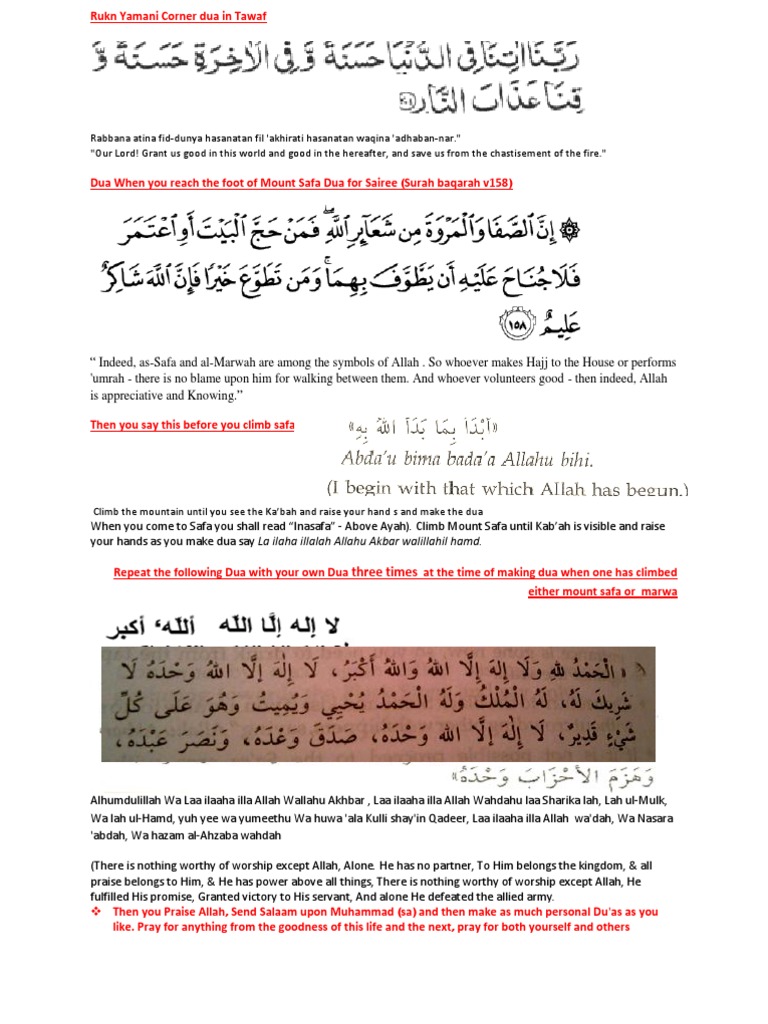 Rukn Yamani Corner dua in Tawaf
رَبَّنَا اٰتِنَا فِي الدُّنْيَا حَسَنَةً وَّ فِي الْاٰخِرَةِ حَسَنَةً وَّ
قِنَا عَذَابَ النَّارِ ﴿٢٠١﴾
Rabbana atina fid-dunya hasanatan fil 'akhirati hasanatan waqina 'adhaban-nar."
"Our Lord! Grant us good in this world and good in the hereafter, and save us from the chastisement of the fire."
Dua When you reach the foot of Mount Safa Dua for Sairee (Surah baqarah v158)
۞ إِنَّ ٱلصَّفَا وَٱلْمَرْوَةَ مِن شَعَآئِرِ ٱللَّهِ ۖ فَمَنْ حَجَّ ٱلْبَيْتَ أَوِ ٱعْتَمَرَ
فَلَا جُنَاحَ عَلَيْهِ أَن يَطَّوَّفَ بِهِمَا ۚ وَمَن تَطَوَّعَ خَيْرًا فَإِنَّ ٱللَّهَ شَاكِرٌ
عَلِيمٌ ﴿١٥٨﴾
“ Indeed, as-Safa and al-Marwah are among the symbols of Allah . So whoever makes Hajj to the House or performs
'umrah - there is no blame upon him for walking between them. And whoever volunteers good - then indeed, Allah
is appreciative and Knowing.”
Then you say this before you climb safa
«أَبْدَأُ بِمَا بَدَأَ اللهُ بِهِ»
Abda'u bima bada'a Allahu bihi.
(I begin with that which Allah has begun.)
Climb the mountain until you see the Ka’bah and raise your hand s and make the dua
When you come to Safa you shall read “Inasafa” - Above Ayah). Climb Mount Safa until Kab’ah is visible and raise
your hands as you make dua say La ilaha illalah Allahu Akbar walillahil hamd.
Repeat the following Dua with your own Dua three times at the time of making dua when one has climbed
either mount safa or marwa
لا إله إلّا الله الله، أكبر
«الْحَمْدُ لِلّٰهِ وَلَا إِلهَ إِلَّا اللهُ وَاللهُ أَكْبَرُ، لَا إِلٰهَ إِلَّا اللهُ وَحْدَهُ لَا
شَرِيكَ لَهُ، لَهُ الْمُلْكُ وَلَهُ الْحَمْدُ يُحْيِي وَيُمِيتُ وَهُوَ عَلَى كُلِّ
شَيْءٍ قَدِيرٌ، لَا إِلٰهَ إِلَّا الله وَحْدَهُ، صَدَقَ وَعْدَهُ، وَنَصَرَ عَبْدَهُ،
وَهَزَمَ الأَحْزَابَ وَحْدَهُ»
Alhumdulillah Wa Laa ilaaha illa Allah Wallahu Akhbar , Laa ilaaha illa Allah Wahdahu laa Sharika lah, Lah ul-Mulk,
Wa lah ul-Hamd, yuh yee wa yumeethu Wa huwa 'ala Kulli shay'in Qadeer, Laa ilaaha illa Allah wa'dah, Wa Nasara
'abdah, Wa hazam al-Ahzaba wahdah
(There is nothing worthy of worship except Allah, Alone. He has no partner, To Him belongs the kingdom, & all
praise belongs to Him, & He has power above all things, There is nothing worthy of worship except Allah, He
fulfilled His promise, Granted victory to His servant, And alone He defeated the allied army.
❖ Then you Praise Allah, Send Salaam upon Muhammad (sa) and then make as much personal Du'as as you
like. Pray for anything from the goodness of this life and the next, pray for both yourself and others